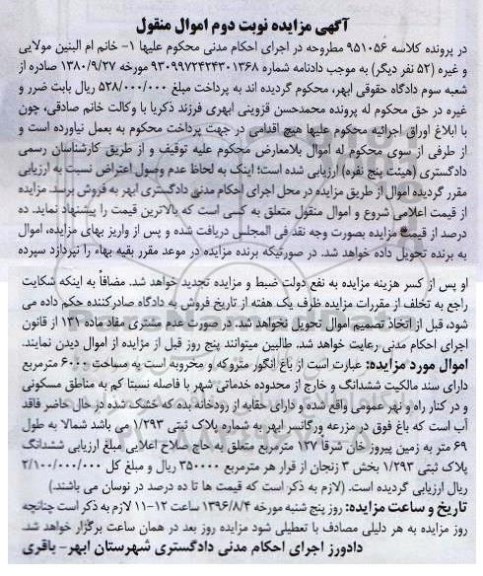 آگهی مزایده نوبت دوم اموال منقول
در پرونده کلاسه ۹۵۱۰۵۶ مطروحه در اجرای احکام مدنی محکوم علیها ۱- خانم ام البنین مولایی
و غیره (۵۲ نفر دیگر) به موجب دادنامه شماره ۹۳۰۹۹۷۲۴۲۴۳۰۱۳۶۸ مورخه ۱۳۸۰/۹/۲۷ صادره از
شعبه سوم دادگاه حقوقی ابهر، محکوم گردیده اند به پرداخت مبلغ ۵۲۸/۰۰۰/۰۰۰ ریال بابت ضرر و
غیره در حق محکوم له پرونده محمدحسن قزوینی ابهری فرزند ذکریا با وکالت خانم صادقی، چون
با ابلاغ اوراق اجرائیه محکوم علیها هیچ اقدامی در جهت پرداخت محکوم به بعمل نیاورده است و
از طرفی از سوی محکوم له اموال بلامعارض محکوم علیه توقیف و از طریق کارشناسان رسمی
دادگستری (هیئت پنج نفره) ارزیابی شده است؛ اینک به لحاظ عدم وصول اعتراض نسبت به ارزیابی
مقرر گردیده اموال از طریق مزایده در محل اجرای احکام مدنی دادگستری ابهر به فروش برسد. مزایده
از قیمت اعلامی شروع و اموال منقول متعلق به کسی است که بالاترین قیمت را پیشنهاد نماید. ده
درصد از قیمت مزایده بصورت وجه نقد فی المجلس دریافت شده و پس از واریز بهای مزایده، اموال
به برنده تحویل داده خواهد شد. در صورتیکه برنده مزایده در موعد مقرر بقیه بهاء را نپردازد سپرده
او پس از کسر هزینه مزایده به نفع دولت ضبط و مزایده تجدید خواهد شد. مضافاً به اینکه شکایت
راجع به تخلف از مقررات مزایده ظرف یک هفته از تاریخ فروش به دادگاه صادرکننده حکم داده می
شود، قبل از اتخاذ تصمیم اموال تحویل نخواهد شد. در صورت عدم مشتری مفاد ماده ۱۳۱ از قانون
اجرای احکام مدنی رعایت خواهد شد. طالبین میتوانند پنج روز قبل از مزایده از اموال دیدن نمایند.
اموال مورد مزایده: عبارت است از باغ انگور متروکه و مخروبه است به مساحت ۶۰۰۰ مترمربع
دارای سند مالکیت ششدانگ و خارج از محدوده خدماتی شهر با فاصله نسبتا کم به مناطق مسکونی
و در کنار راه و نهر عمومی واقع شده و دارای حقابه از رودخانه بده که خشک شده در حال حاضر فاقد
آب است که باغ فوق در مزرعه ورگانسر ابهر به شماره پلاک ثبتی ۱/۲۹۳ می باشد شمالا به طول
۶۹ متر به زمین پیروز خان شرقاً ۱۳۷ مترمربع متعلق به حاج صلاح اعلایی مبلغ ارزیابی ششدانگ
پلاک ثبتی ۱/۲۹۳ بخش ۳ زنجان از قرار هر مترمربع ۳۵۰۰۰۰ ریال و مبلغ کل ۲/۱۰۰/۰۰۰/۰۰۰
ریال ارزیابی گردیده است. (لازم به ذکر است که قیمت ها تا ده درصد در نوسان می باشند)
تاریخ و ساعت مزایده: روز پنج شنبه مورخه ۱۳۹۶/۸/۴ ساعت ۱۲-۱۱ لازم به ذکر است چنانچه
روز مزایده به هر دلیلی مصادف با تعطیلی شود مزایده روز بعد در همان ساعت برگزار خواهد شد.
دادورز اجرای احکام مدنی دادگستری شهرستان ابهر- باقری